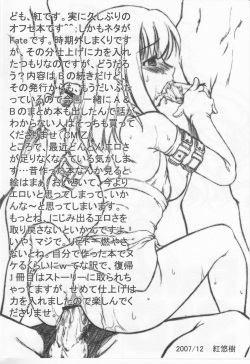 ども、紅です。実に久しぶりの
オフセ本です^^;しかもネタが
Fateです。時期外しまくりです
が、その分仕上げに力を入れ
たつもりなのですが、どうだろ
う？内容はBの続きだけど、
その発行からも、もうだいぶた
っているので
のまとめ本も出したんで話が
わからない人は
ところで、最近どんどんエロさ
が足りなくなっている気がしま
す…昔作った本なんか見ると
絵はまぁ
エロいと思ってしまって、いか
んな～と思ってしまいます。
もっとね、にじみ出るエロさを
取り戻さないといかんですよ。
いや、マジで
さないとね。自分で作った本でヌ
ケるくらいにw
1冊目はストーリーに取られち
ゃってますが、せめて仕上げは
力を入れましたので楽しんでく
ださいませ。
2007/12　紅悠樹